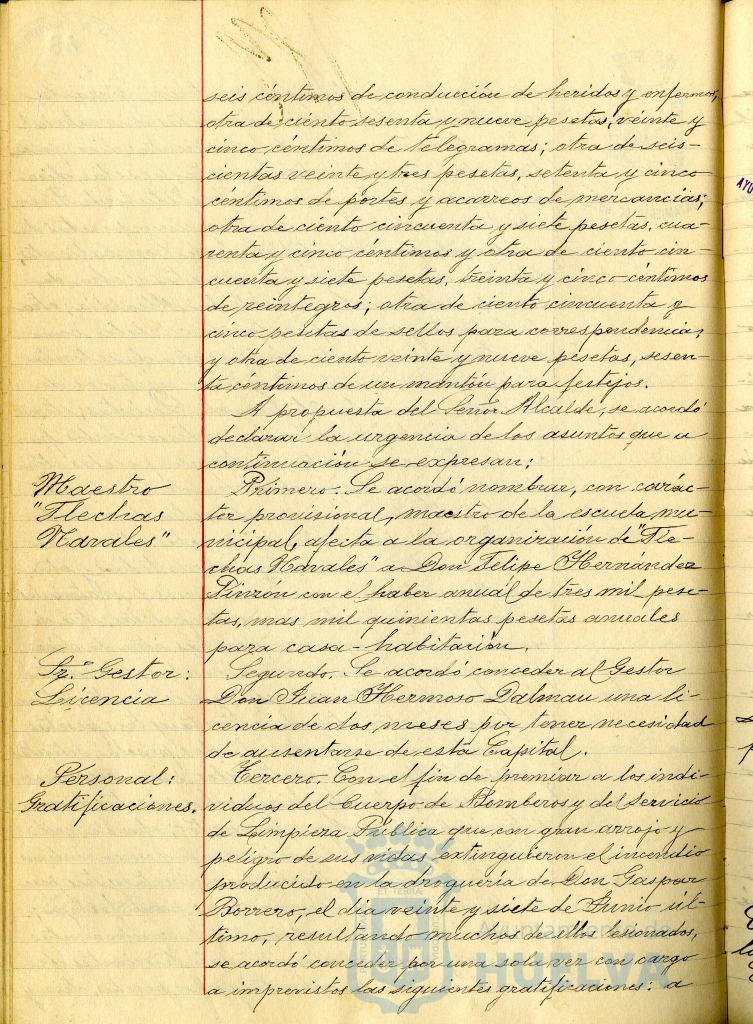 seis céntimos de conducción de heridos y enfermos;
otra de ciento sesenta y nueve pesetas, veinte y
cinco céntimos de telegramas; otra de seis-
cientas veinte y tres pesetas, setenta y cinco
céntimos de portes y acarreos de mercancías;
otra de ciento cincuenta y siete pesetas, cua-
renta y cinco céntimos y otra de ciento cin-
cuenta y siete pesetas, treinta y cinco céntimos
de reintegros; otra de ciento cincuenta y
cinco pesetas de sellos para correspondencia;
y otra de ciento veinte y nueve pesetas, sesen-
ta centimos de un mantón para festejos.
A propuesta del Señor Alcalde, se acordó
declarar la urgencia de los asuntos que a
continuación se expresan:
Maestro
"Flechas
Navales"
Primero. Se acordó nombrar, con carác-
ter provisional, maestro de la escuela mu-
nicipal, afecta a la organización de "Fle-
chas Navales" a Don Felipe Hernández
Pinzón con el haber anual de tres mil pese-
tas, mas mil quinientas pesetas anuales
para casa-habitación.
Sr. Gestor:
Licencia
Segundo. Se acordó conceder al Gestor
Don Juan Hermoso Dalmau una li-
cencia de dos meses por tener necesidad
de ausentarse de esta Capital.
Personal:
Gratificaciones.
Tercero. Con el fin de premiar a los indi-
viduos del Cuerpo de Bomberos y del Servicio
de Limpieza Pública que con gran arrojo y
peligro de sus vidas extinguieron el incendio
producido en la droguería de Don Gaspar
Borrero, el día veinte y siete de Junio úl-
timo, resultando muchos de ellos lesionados,
se acordó conceder por una sola vez con cargo
a imprevistos las siguientes gratificaciones: a
Ayuntamiento de
HUELVA